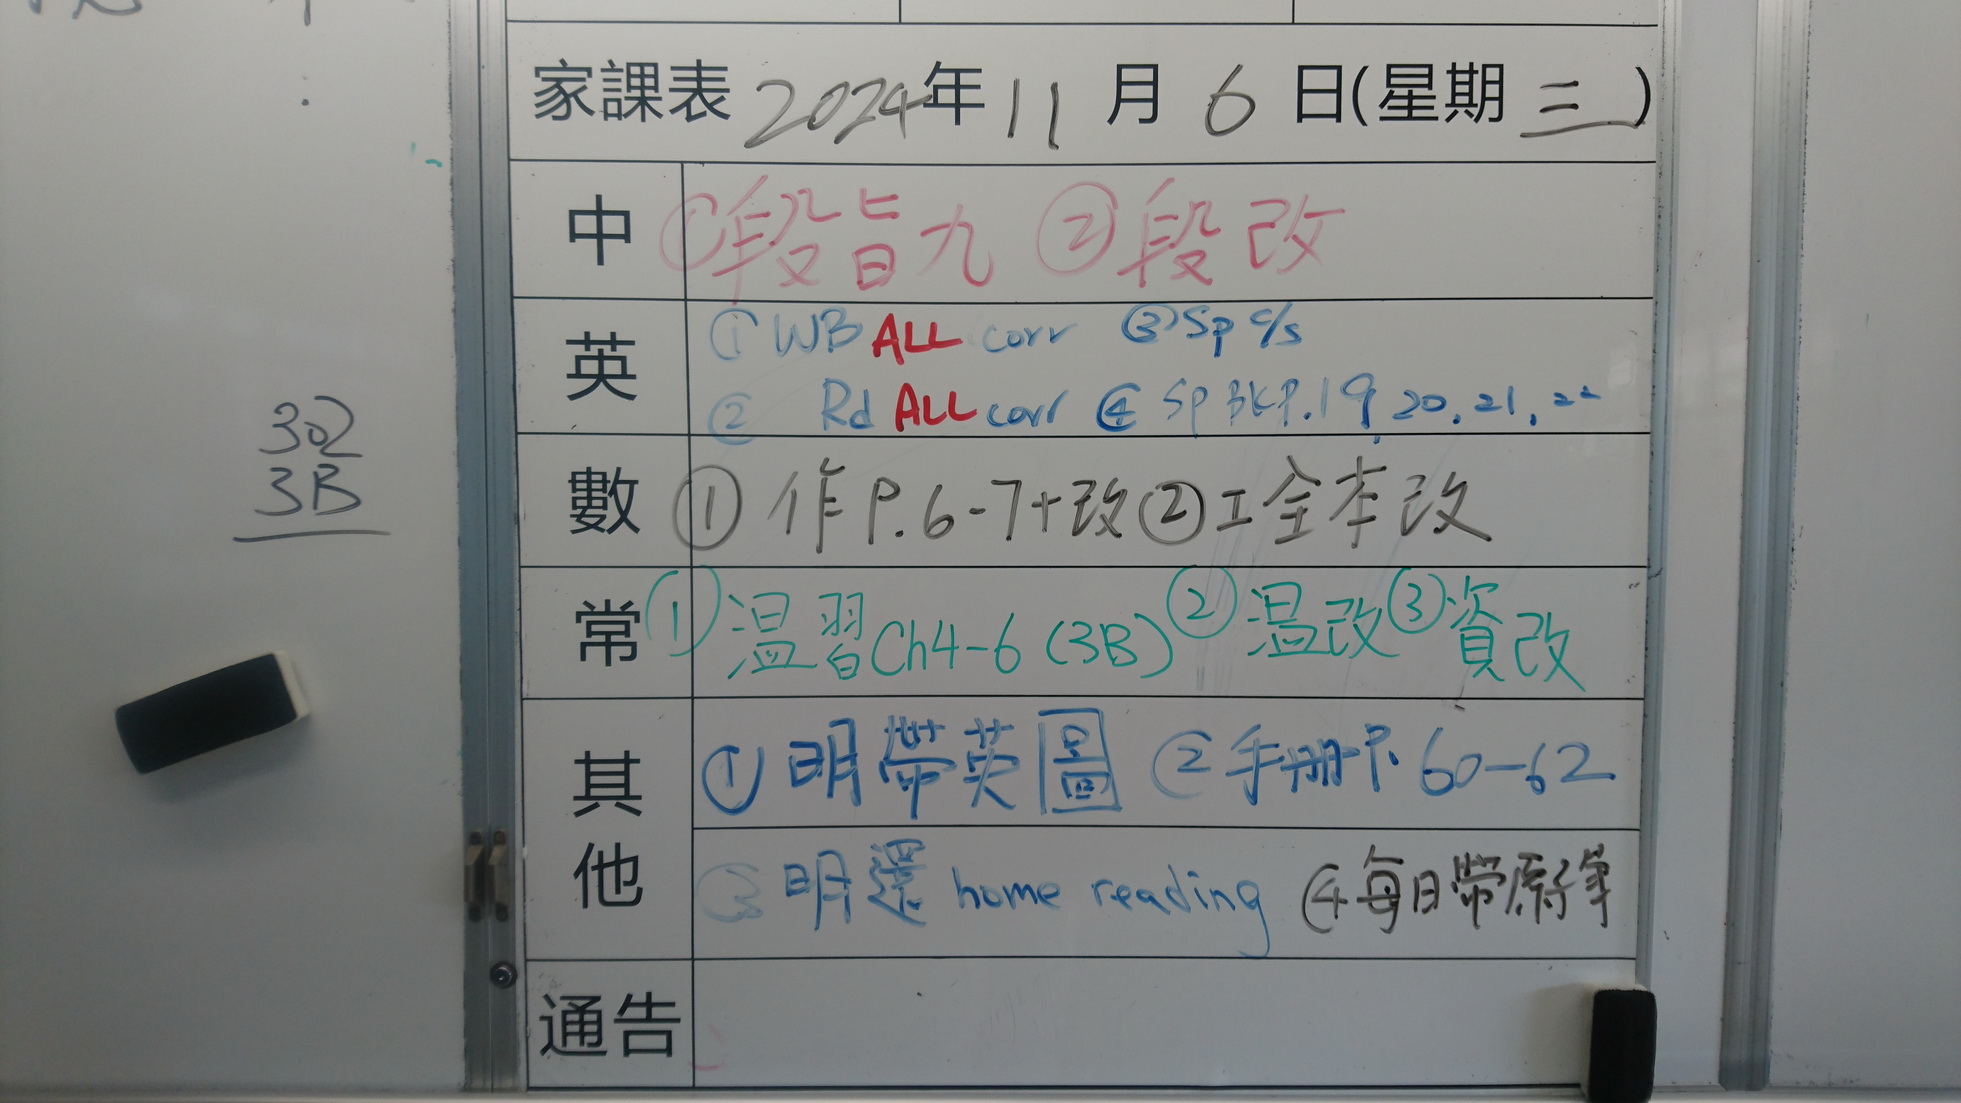 家課表 2024年 11 月 6 日(星期 三 )
中 ①段皆九 ②段改
英 ①WB ALL corr ③Sp c/s
② Rd ALL corr ④ Sp BK P.19, 20, 21, 22
數 ① 作P.6-7+改 ②工全本改
常 ①温習Ch4-6 (3B) ②温改 ③資改
其他 ① 明帶英圖 ② 手冊P. 60-62
③ 明還 home reading ④每日帶原子筆
通告
302
3B